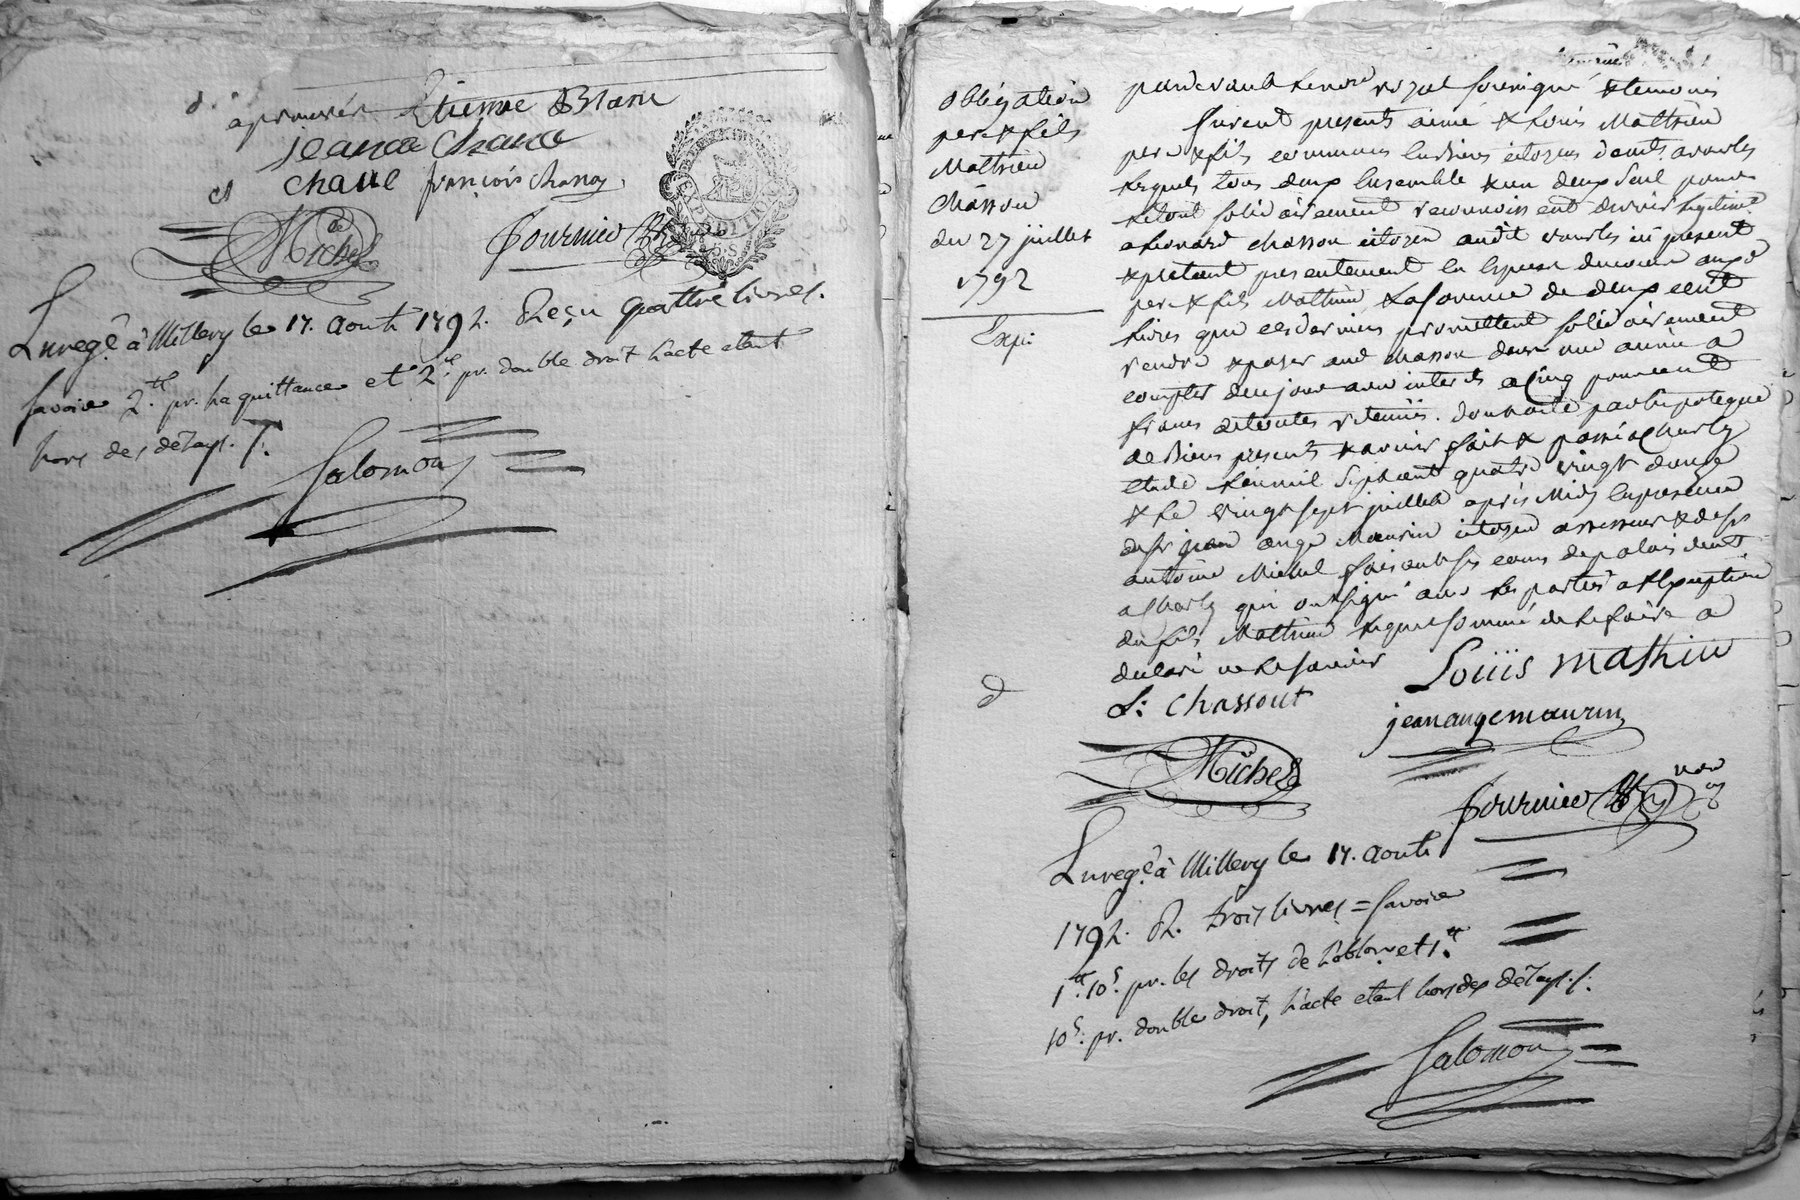 d.
aprouvés Etienne Blanc
jeanoe chanoe
et chave françois chanoz
de Michel fournier
EXPEDITION
Enregé à Millery le 17. aoust 1792. Reçu quattre livres.
savoir 2.tt pr. la quittance et 2.tt pr. double droit l'acte etant
hors des délays. /.
Salomon
Obligation
pere & fils
Mathieu
Chasson
du 27 juillet
1792
Exp:
pardevant le nore royal soussigné & temoins
furent presents aimé & Louis Mathieu
pere & fils communs en biens citoyens demts. a vourles
lesquels tous deux ensemble & un deux seul pour
le tout solidairement reconnoissent devoir legitimt.
a Leonard chasson citoyen audit vourles icy present
& pretant presentement en especes de cours auxd.
pere & fils Mathieu la somme de deux cent
livres que ces derniers promettent solidairement
rendre & payer aud. chasson dans une année a
compter de ce jour avec interets a cinq pour cent
francs de toutes retenües. dont acte par hipoteque
de biens presents & avenir fait & passé a Charly
etude l'an mil sept cent quatre vingt douze
& le vingt sept juillet après Midy en presence
de sr jean ange Maurin citoyen assesseur & de sr
antoine Michel faisant ses cours de palais demt.
a Charly qui ont signé avec les parties a l'exception
du fils Mathieu lequel sommé de le faire a
declaré ne le savoir
Louis mathieu
d
L: Chassout
jean ange maurin
Michel
fournier nore
Enregé à Millery le 17. aoust
1792. R. trois livres = savoir
1.tt 10.s pr. les droits de l'oblon. et 1.tt
10.s pr. double droit, l'acte etant hors des délays. /.
Salomon